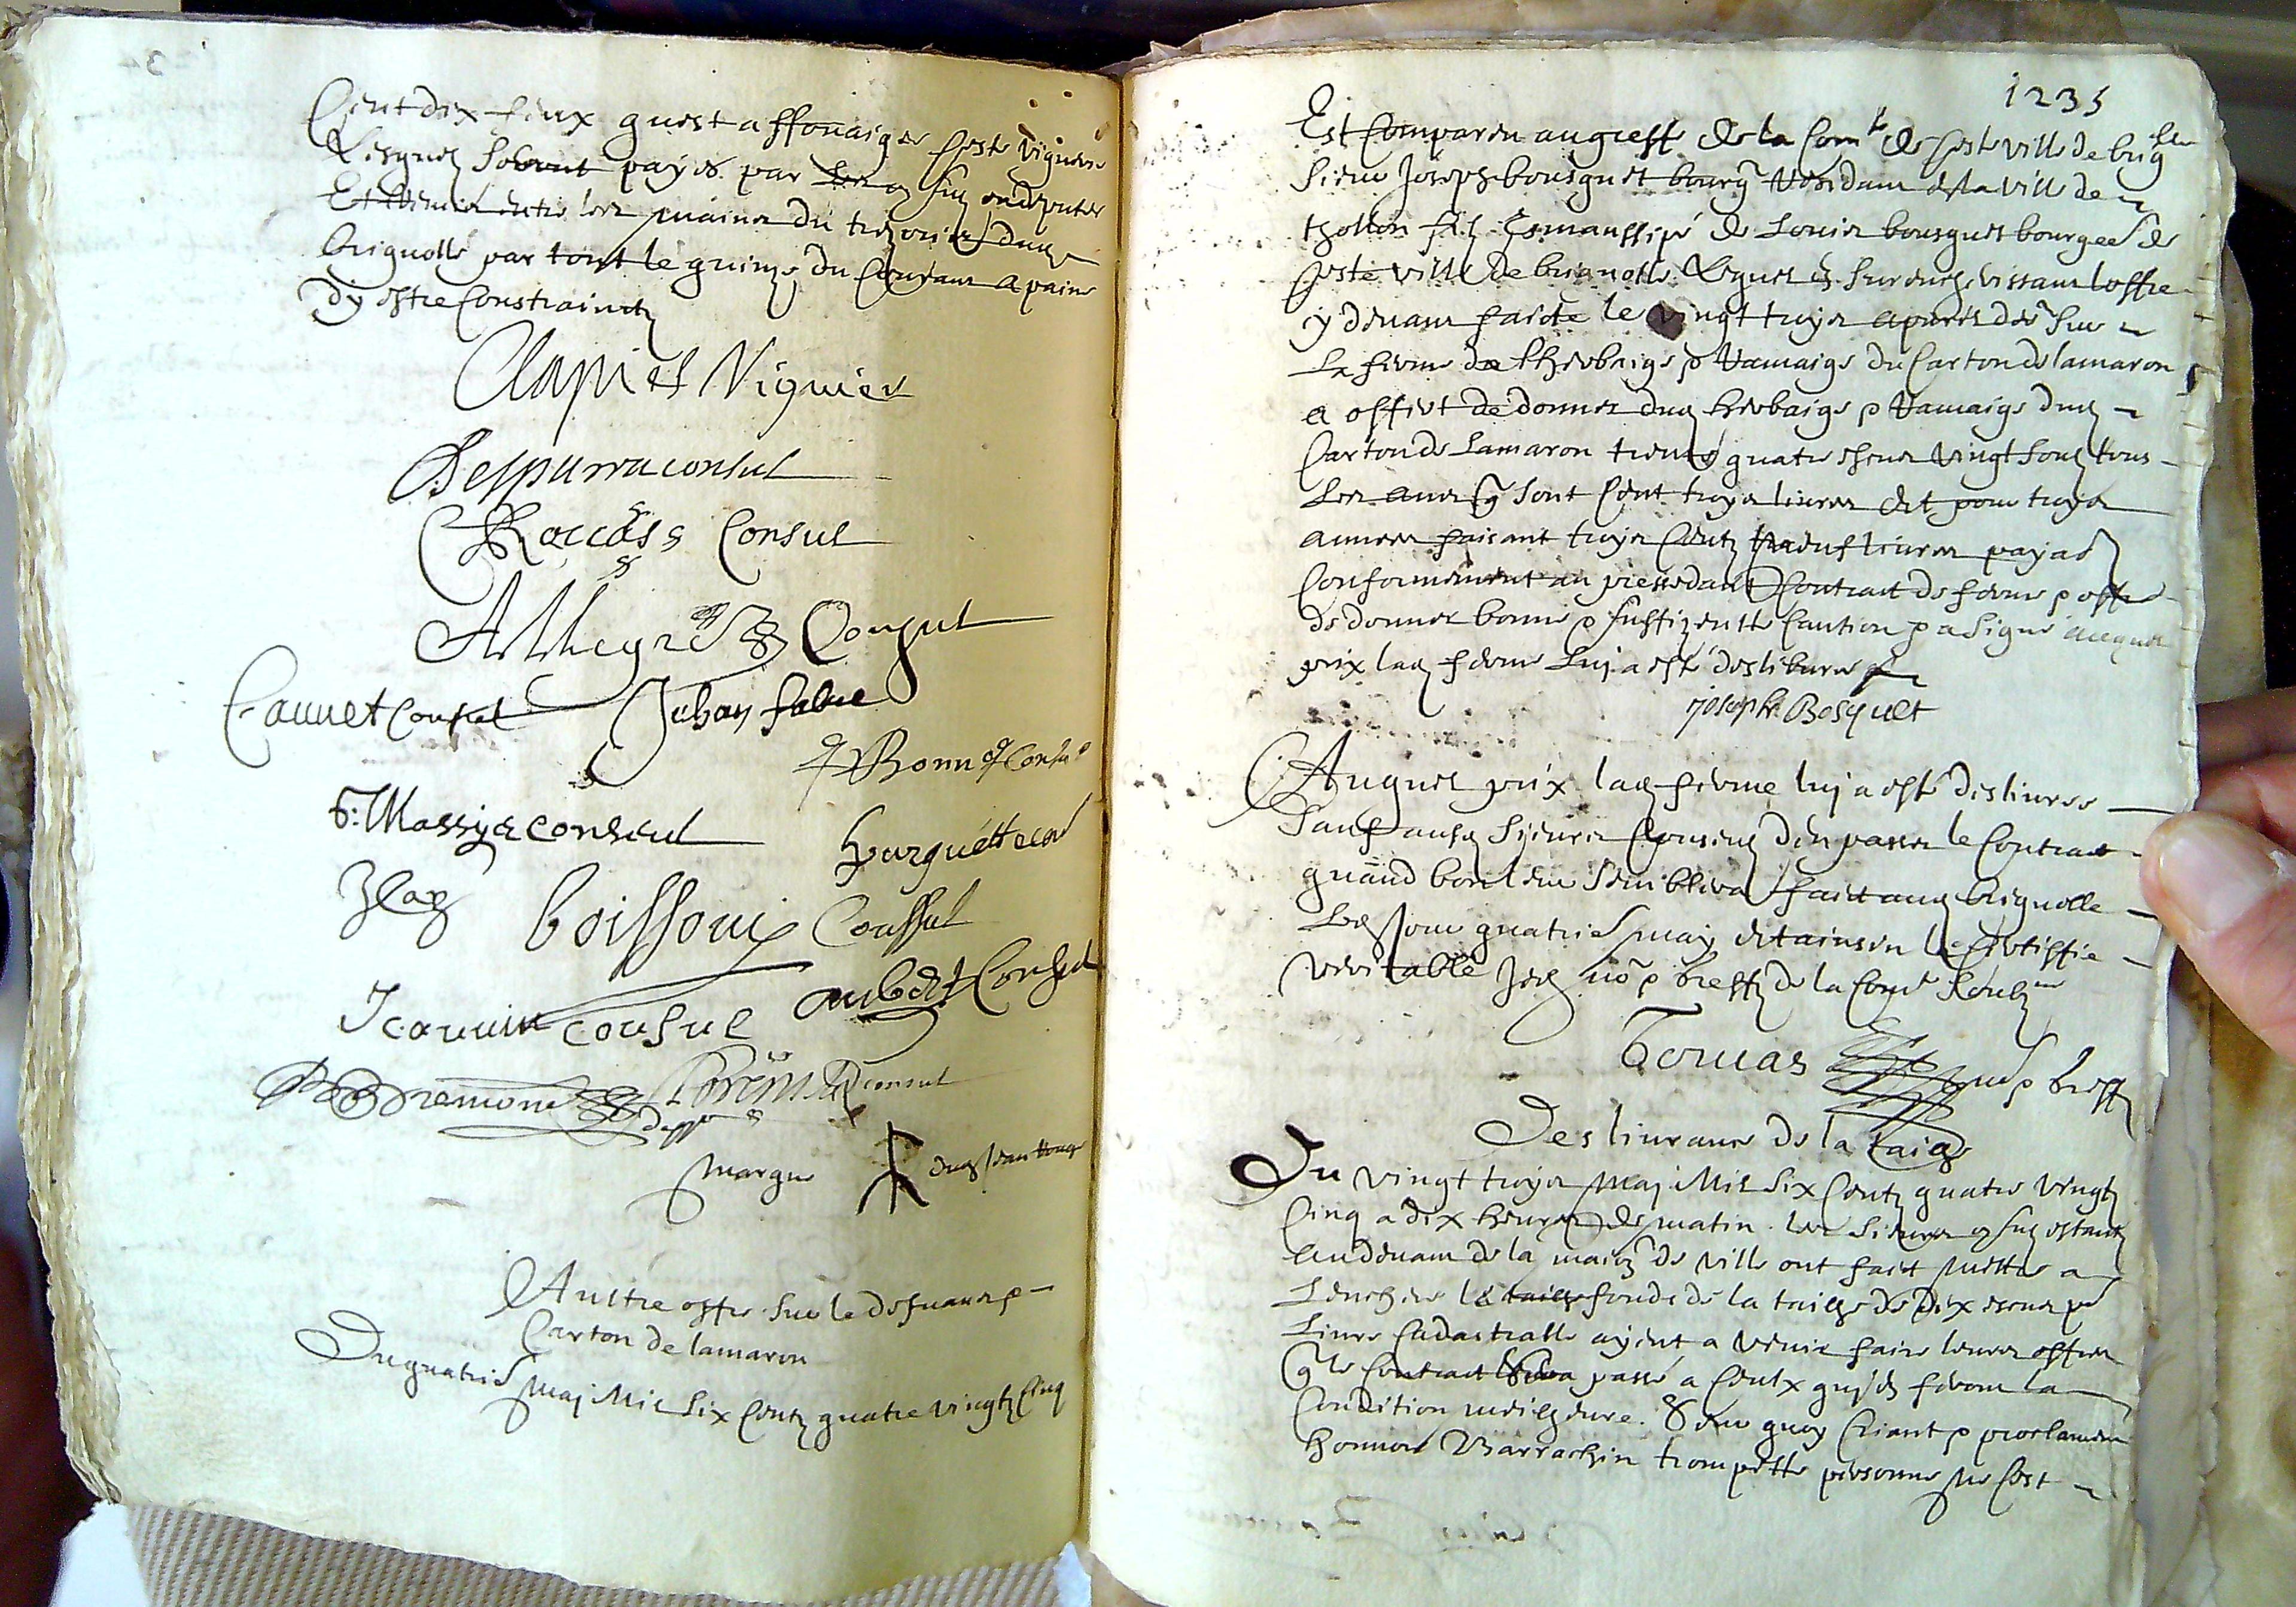 Cent dix feux quest affouaigee ceste viguerie
Lesquelz seront payes par
Et entre les mains du trezorier dud
brignolle par tout le quinze du courant a paine
dy estre constrainctz
Clapiers Viguier
Desparra consul
Roccass Consul
Allhegre Consul
Cauvet Consul Jehan fabre
Bonn Consul
F: Massye conseul
Boissony Consul
Jeaume Consul aubert Consul
Bremond consul
marque dud
Aultre offre sur le desfrans p
Carton de lamaron
Du quatrie may Mil six centz quatre vingtz cinq
1235
Est compareu au greffe de la comte de ceste ville de brigllle
Sieur Joseph bousquet bourg residant a la ville de
thollon filz esmanssipé de Louis bousquet bourgeois de
ceste ville de brignolle Lequel en surenchrissant loffre
y devant faicte le vingt troys apvril der sur
La ferme de lherbaige p ramaige du Carton de lamaron
a offert de donner dud herbaige p ramaige dud
Carton de Lamaron trente quatre escus vingt soulz tous
Les ans q sont cent troys livres et pour troys
annees faisant troys centz neuf livres payad
Conformement au pressedant Contract de ferme p offre
de donner bonne p suffizente caution p a signé auquel
prix lad ferme Luy a esté deslivree
joseph Bosquet
Auquel prix lad ferme luy a esté deslivree
sauf ausd sieurs Consulz den passer le Contract
quand bon leur semblera faict aud brignolle
Led jour quatrie may et ainsin le certiffie
veritable Je no p greff de la com
Tomas no p greff
Deslivrance de la taie
Du vingt troys may Mil six centz quatre vingtz
cinq a dix heures de matin les sieurs estantz
au devant de la maison de ville ont faict mettre a
Lenchere la fonde de la taille de dix escus p
Livre cadastralle ayent a venir faire leurs offres
q le contract sera passé a ceulx quy feront la
Condition meilheure. Sur quoy criant p proclamant
honnore Barrachin trompette personne ne cest